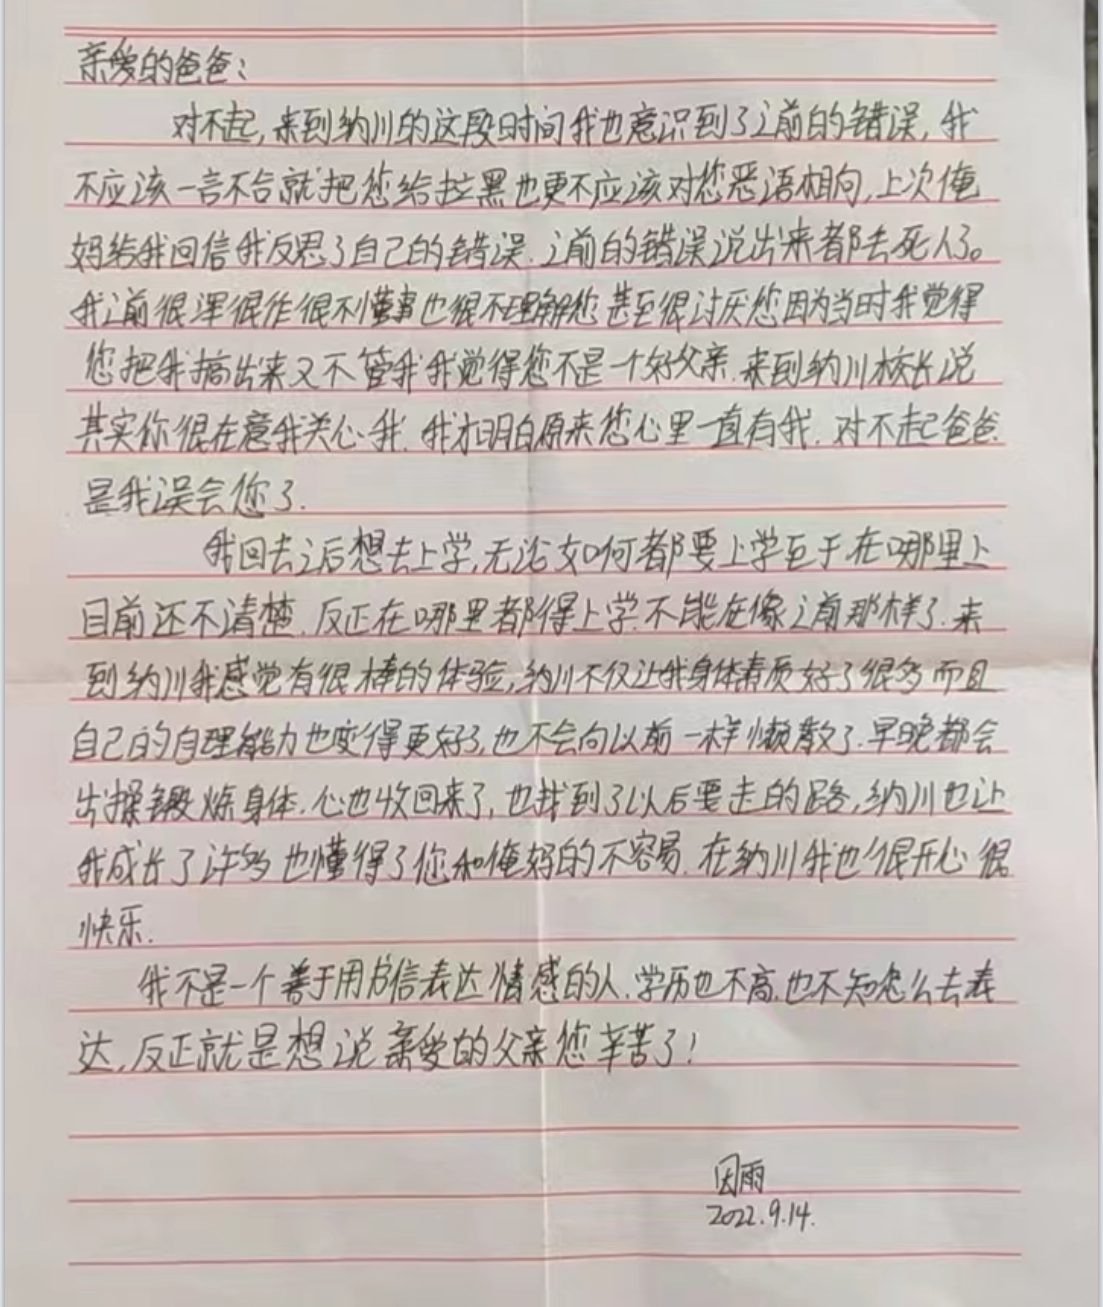 亲爱的爸爸：
对不起，来到纳川的这段时间我也意识到了之前的错误，我
不应该一言不合就把您给拉黑也更不应该对您恶语相向，上次俺
妈给我回信我反思了自己的错误．之前的错误说出来都丢死人了。
我之前很浑很作很不懂事也很不理解您甚至很讨厌您因为当时我觉得
您把我搞出来又不管我我觉得您不是一个好父亲．来到纳川校长说
其实你很在意我关心我．我才明白原来您心里一直有我．对不起爸爸
是我误会您了．
我回去之后想去上学，无论如何都要上学至于在哪里上
目前还不清楚．反正在哪里都得上学不能在像之前那样了．来
到纳川我感觉有很棒的体验，纳川不仅让我身体素质好了很多而且
自己的自理能力也变得更好了，也不会向以前一样懒散了．早晚都会
出操锻炼身体．心也收回来了，也找到了以后要走的路，纳川也让
我成长了许多也懂得了您和俺妈的不容易．在纳川我也很开心很
快乐．
我不是一个善于用书信表达情感的人．学历也不高，也不知怎么去表
达，反正就是想说亲爱的父亲您辛苦了！
因雨
2022.9.14.